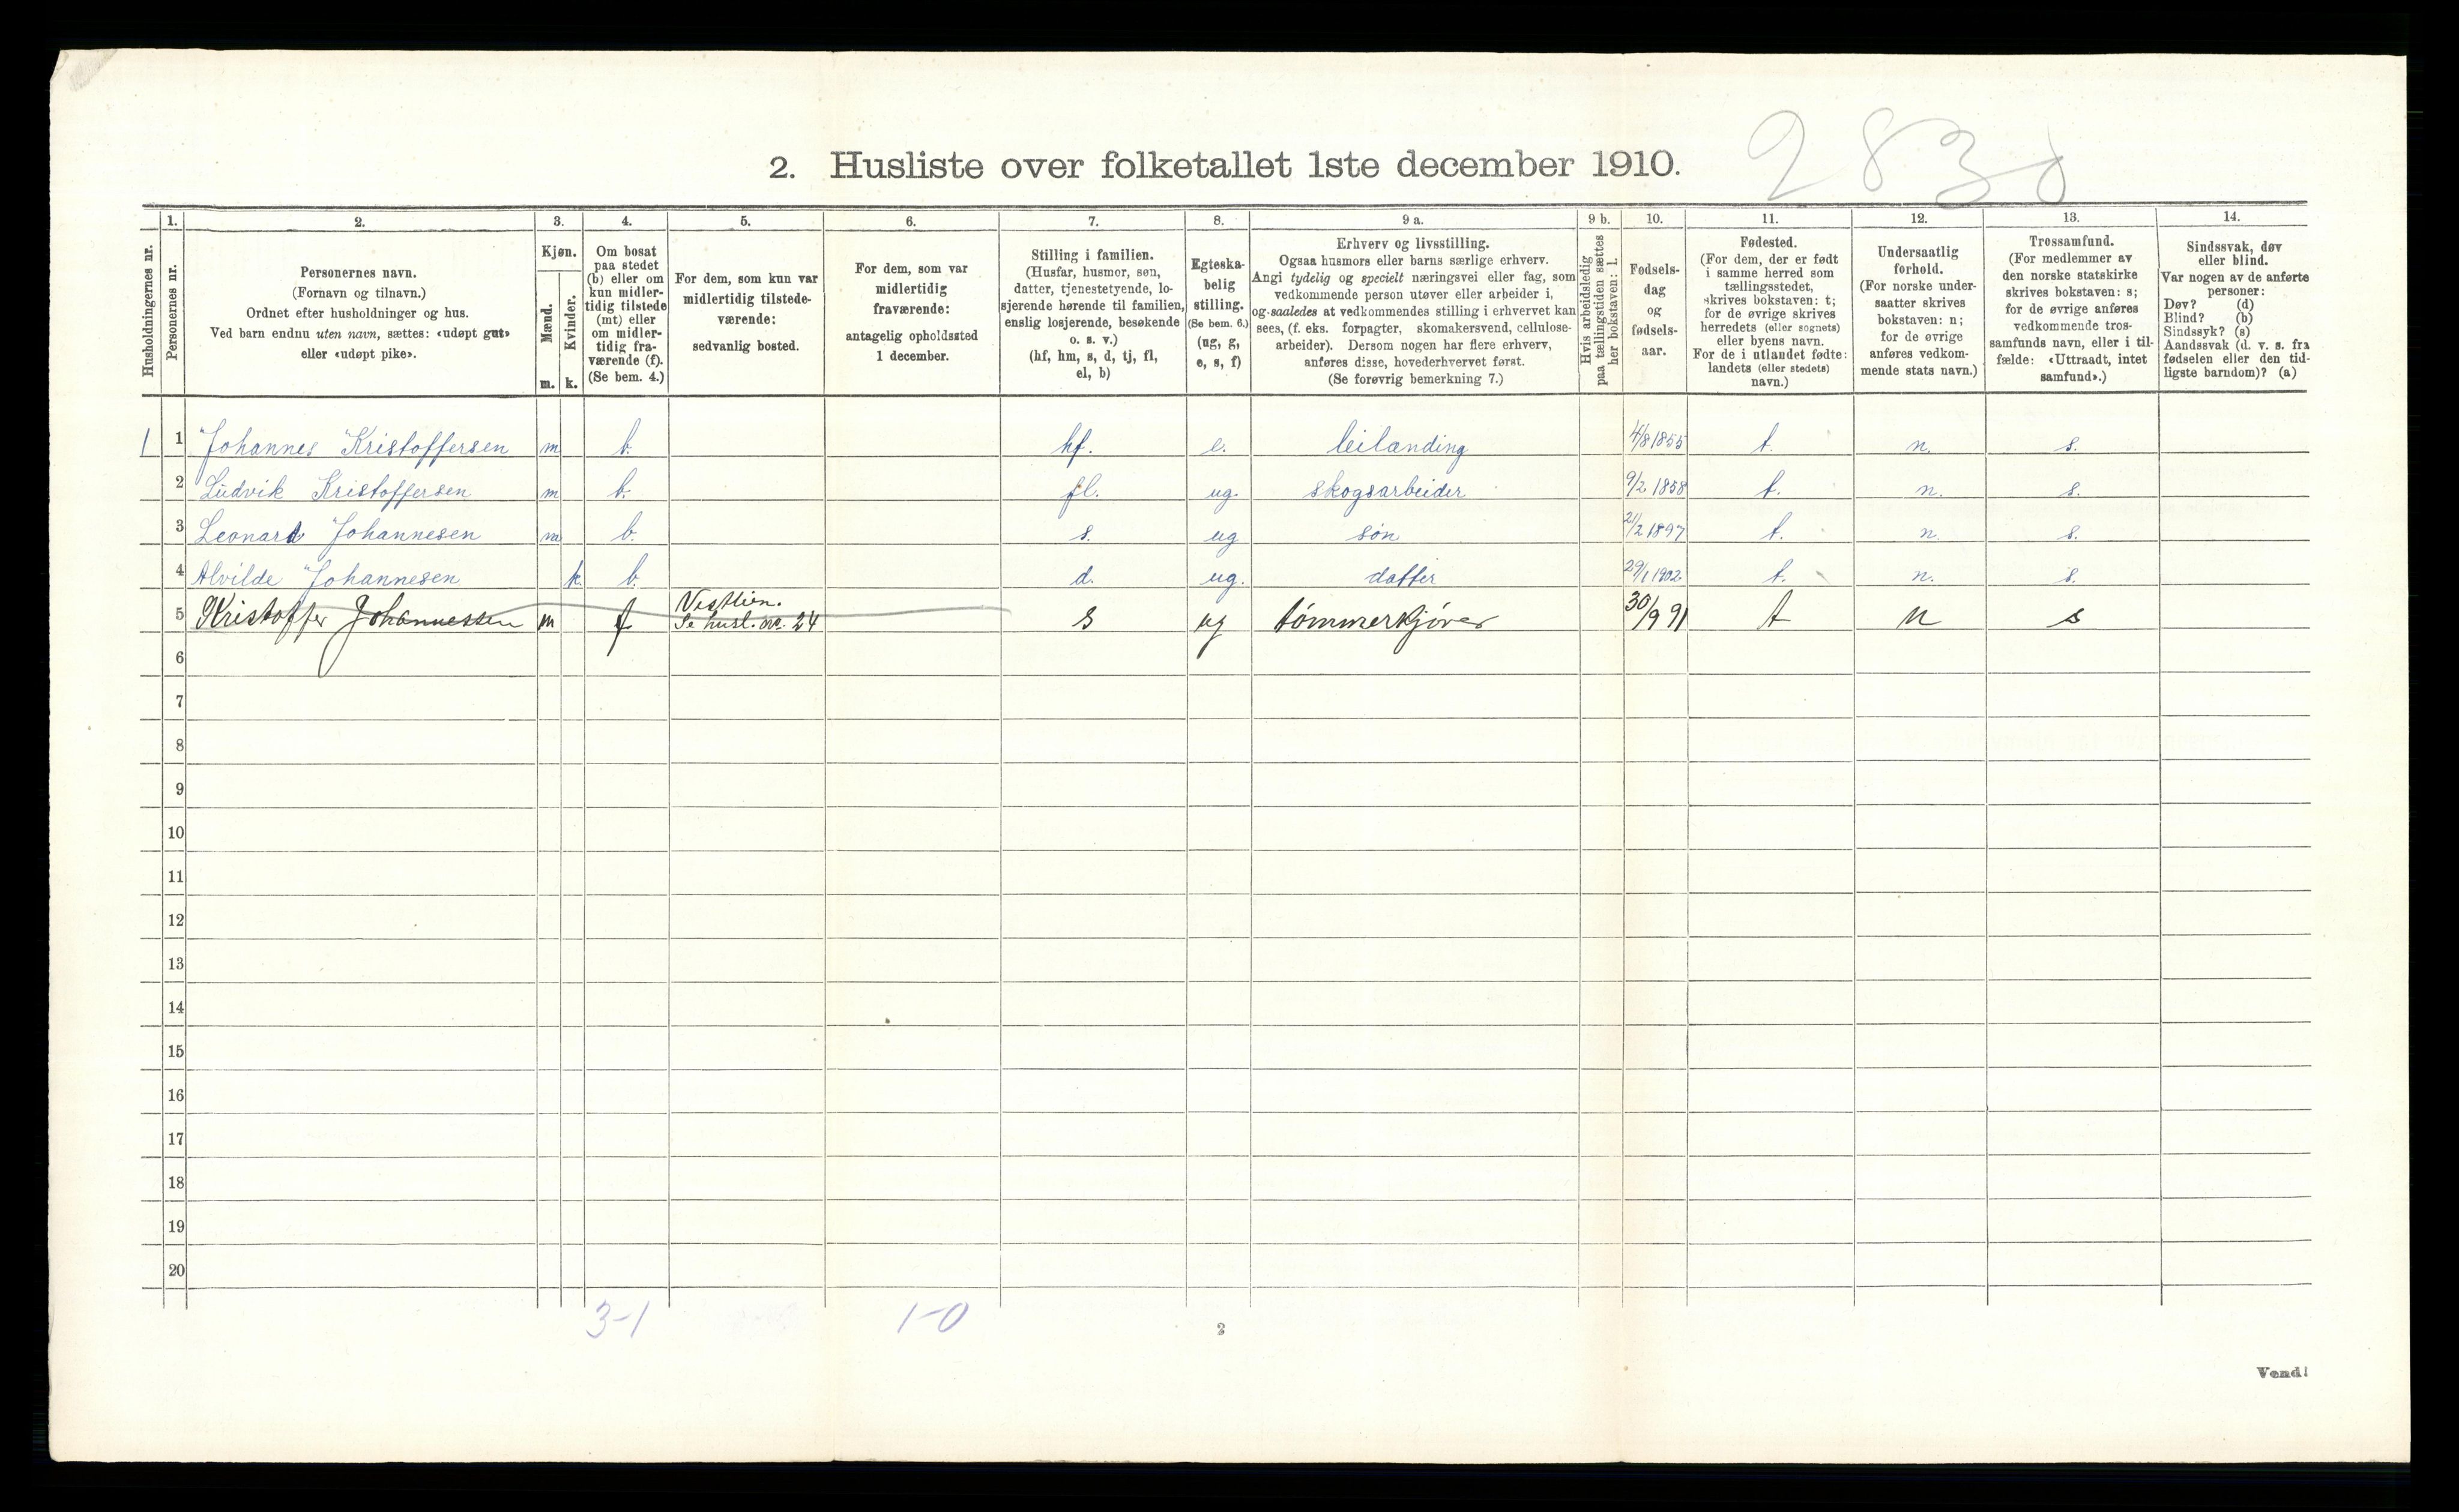 2830
2. Husliste over folketallet 1ste december 1910.
1. 2. 3. 4. 5. 6. 7. 8. 9 a. 9 b. 10. 11. 12. 13. 14.
Husholdningernes nr.
Personernes nr.
Personernes navn.
(Fornavn og tilnavn.)
Ordnet efter husholdninger og hus.
Ved barn endnu uten navn, sættes: «udøpt gut»
eller «udøpt pike».
Kjøn.
Mænd.
Kvinder.
m. k.
Om bosat
paa stedet
(b) eller om
kun midler-
tidig tilstede
(mt) eller
om midler-
tidig fra-
værende (f).
(Se bem. 4.)
For dem, som kun var
midlertidig tilstede-
værende:
sedvanlig bosted.
For dem, som var
midlertidig
fraværende:
antagelig opholdssted
1 december.
Stilling i familien.
(Husfar, husmor, søn,
datter, tjenestetyende, lo-
sjerende hørende til familien,
enslig losjerende, besøkende
o. s. v.)
(hf, hm, s, d, tj, fl,
el, b)
Egteska-
belig
stilling.
(Se bem. 6.)
(ug, g,
e, s, f)
Erhverv og livsstilling.
Ogsaa husmors eller barns særlige erhverv.
Angi tydelig og specielt næringsvei eller fag, som
vedkommende person utøver eller arbeider i,
og saaledes at vedkommendes stilling i erhvervet kan
sees, (f. eks. forpagter, skomakersvend, cellulose-
arbeider). Dersom nogen har flere erhverv,
anføres disse, hovederhvervet først.
(Se forøvrig bemerkning 7.)
Hvis arbeidsledig
paa tællingstiden sættes
her bokstaven: l.
Fødsels-
dag
og
fødsels-
aar.
Fødested.
(For dem, der er født
i samme herred som
tællingsstedet,
skrives bokstaven: t;
for de øvrige skrives
herredets (eller sognets)
eller byens navn.
For de i utlandet fødte:
landets (eller stedets)
navn.)
Undersaatlig
forhold.
(For norske under-
saatter skrives
bokstaven: n;
for de øvrige
anføres vedkom-
mende stats navn.)
Trossamfund.
(For medlemmer av
den norske statskirke
skrives bokstaven: s;
for de øvrige anføres
vedkommende tros-
samfunds navn, eller i til-
fælde: «Uttraadt, intet
samfund».)
Sindssvak, døv
eller blind.
Var nogen av de anførte
personer:
Døv? (d)
Blind? (b)
Sindssyk? (s)
Aandssvak (d. v. s. fra
fødselen eller den tid-
ligste barndom)? (a)
1 1 Johannes Kristoffersen m b. hf. e. leilænding 4/8 1855 t. n. s.
2 Ludvik Kristoffersen m b. fl. ug. skogsarbeider 9/2 1858 t. n. s.
3 Leonard Johannesen m b. s. ug søn 21/2 1897 t. n. s.
4 Alvilde Johannesen k b. d. ug. datter 29/1 1902 t. n. s.
Vestlien.
5 Kristoffer Johannessen m f Se husl. nr. 24 s ug tømmerkjører 30/9 91 t n s
6
7
8
9
10
11
12
13
14
15
16
17
18
19
20
3-1 1-0
2
Vend!